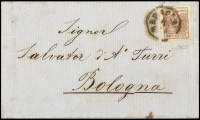 Signor
Salvator d'A' Turri
Bologna